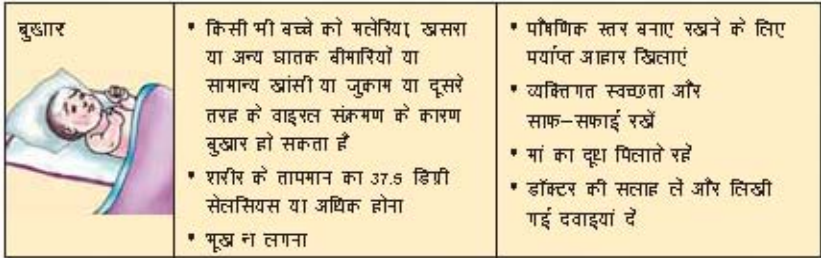 बुखार
• किसी भी बच्चे को मलेरिया, खसरा
या अन्य घातक बीमारियों या
सामान्य खांसी या जुकाम या दूसरे
तरह के वाइरल संक्रमण के कारण
बुखार हो सकता है
• शरीर के तापमान का 37.5 डिग्री
सेलसियस या अधिक होना
• भूख न लगना
• पौषणिक स्तर बनाए रखने के लिए
पर्याप्त आहार खिलाएं
• व्यक्तिगत स्वच्छता और
साफ–सफाई रखें
• मां का दूध पिलाते रहें
• डॉक्टर की सलाह लें और लिखी
गई दवाइयां दें